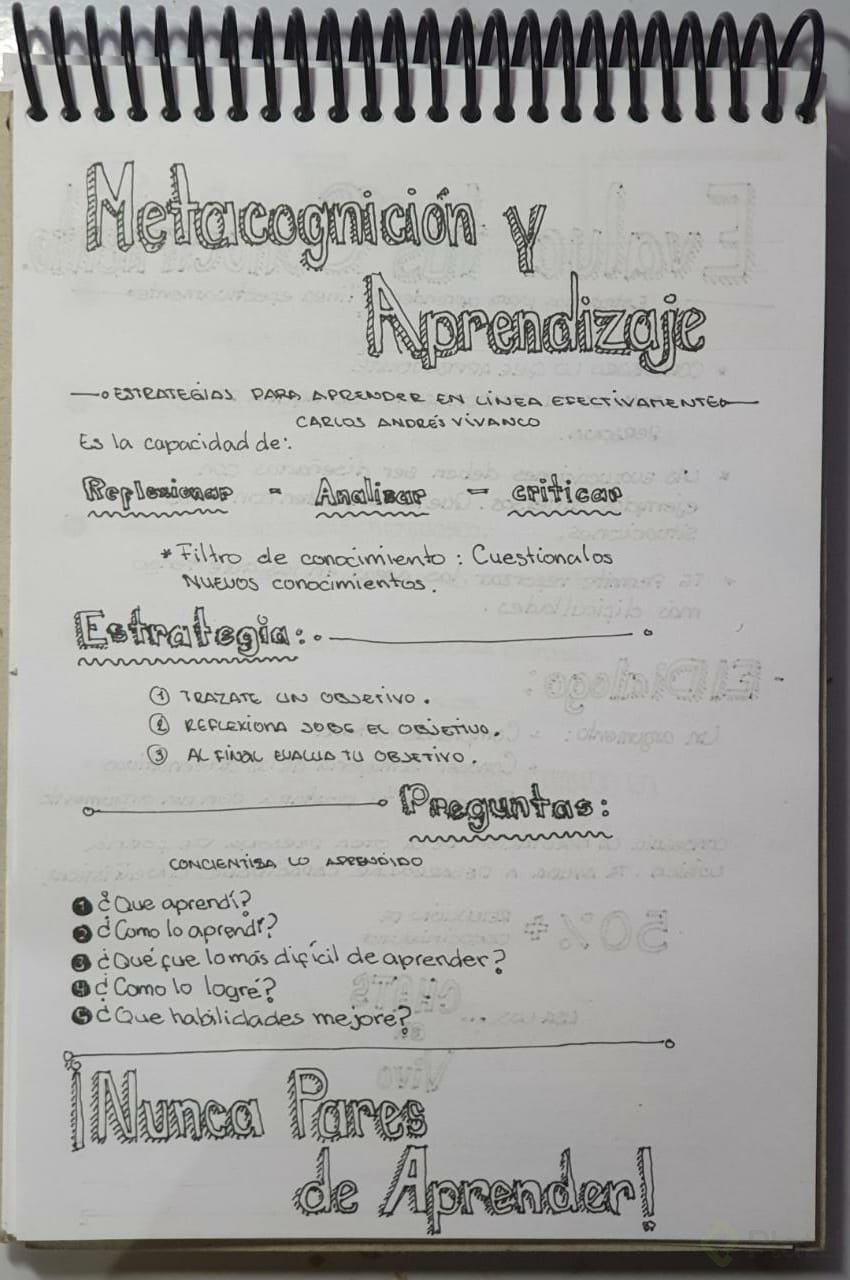 Metacognición y
Aprendizaje
ESTRATEGIAS PARA APRENDER EN LÍNEA EFECTIVAMENTE
CARLOS ANDRÉS VIVANCO
Es la capacidad de:
Reflexionar - Analizar - criticar
* Filtro de conocimiento : Cuestionalos
NUEVOS conocimientos.
Estrategia:
1 TRAZATE UN OBJETIVO.
2 REFLEXIONA SOBE EL OBJETIVO.
3 AL FINAL EVALUA TU OBJETIVO.
Preguntas:
CONCIENTISA LO APRENDIDO
1 ¿Que aprendí?
2 ¿Como lo aprendí?
3 ¿Qué fue lo más difícil de aprender?
4 ¿Como lo logré?
5 ¿Que habilidades mejoré?
¡Nunca Pares
de Aprender!